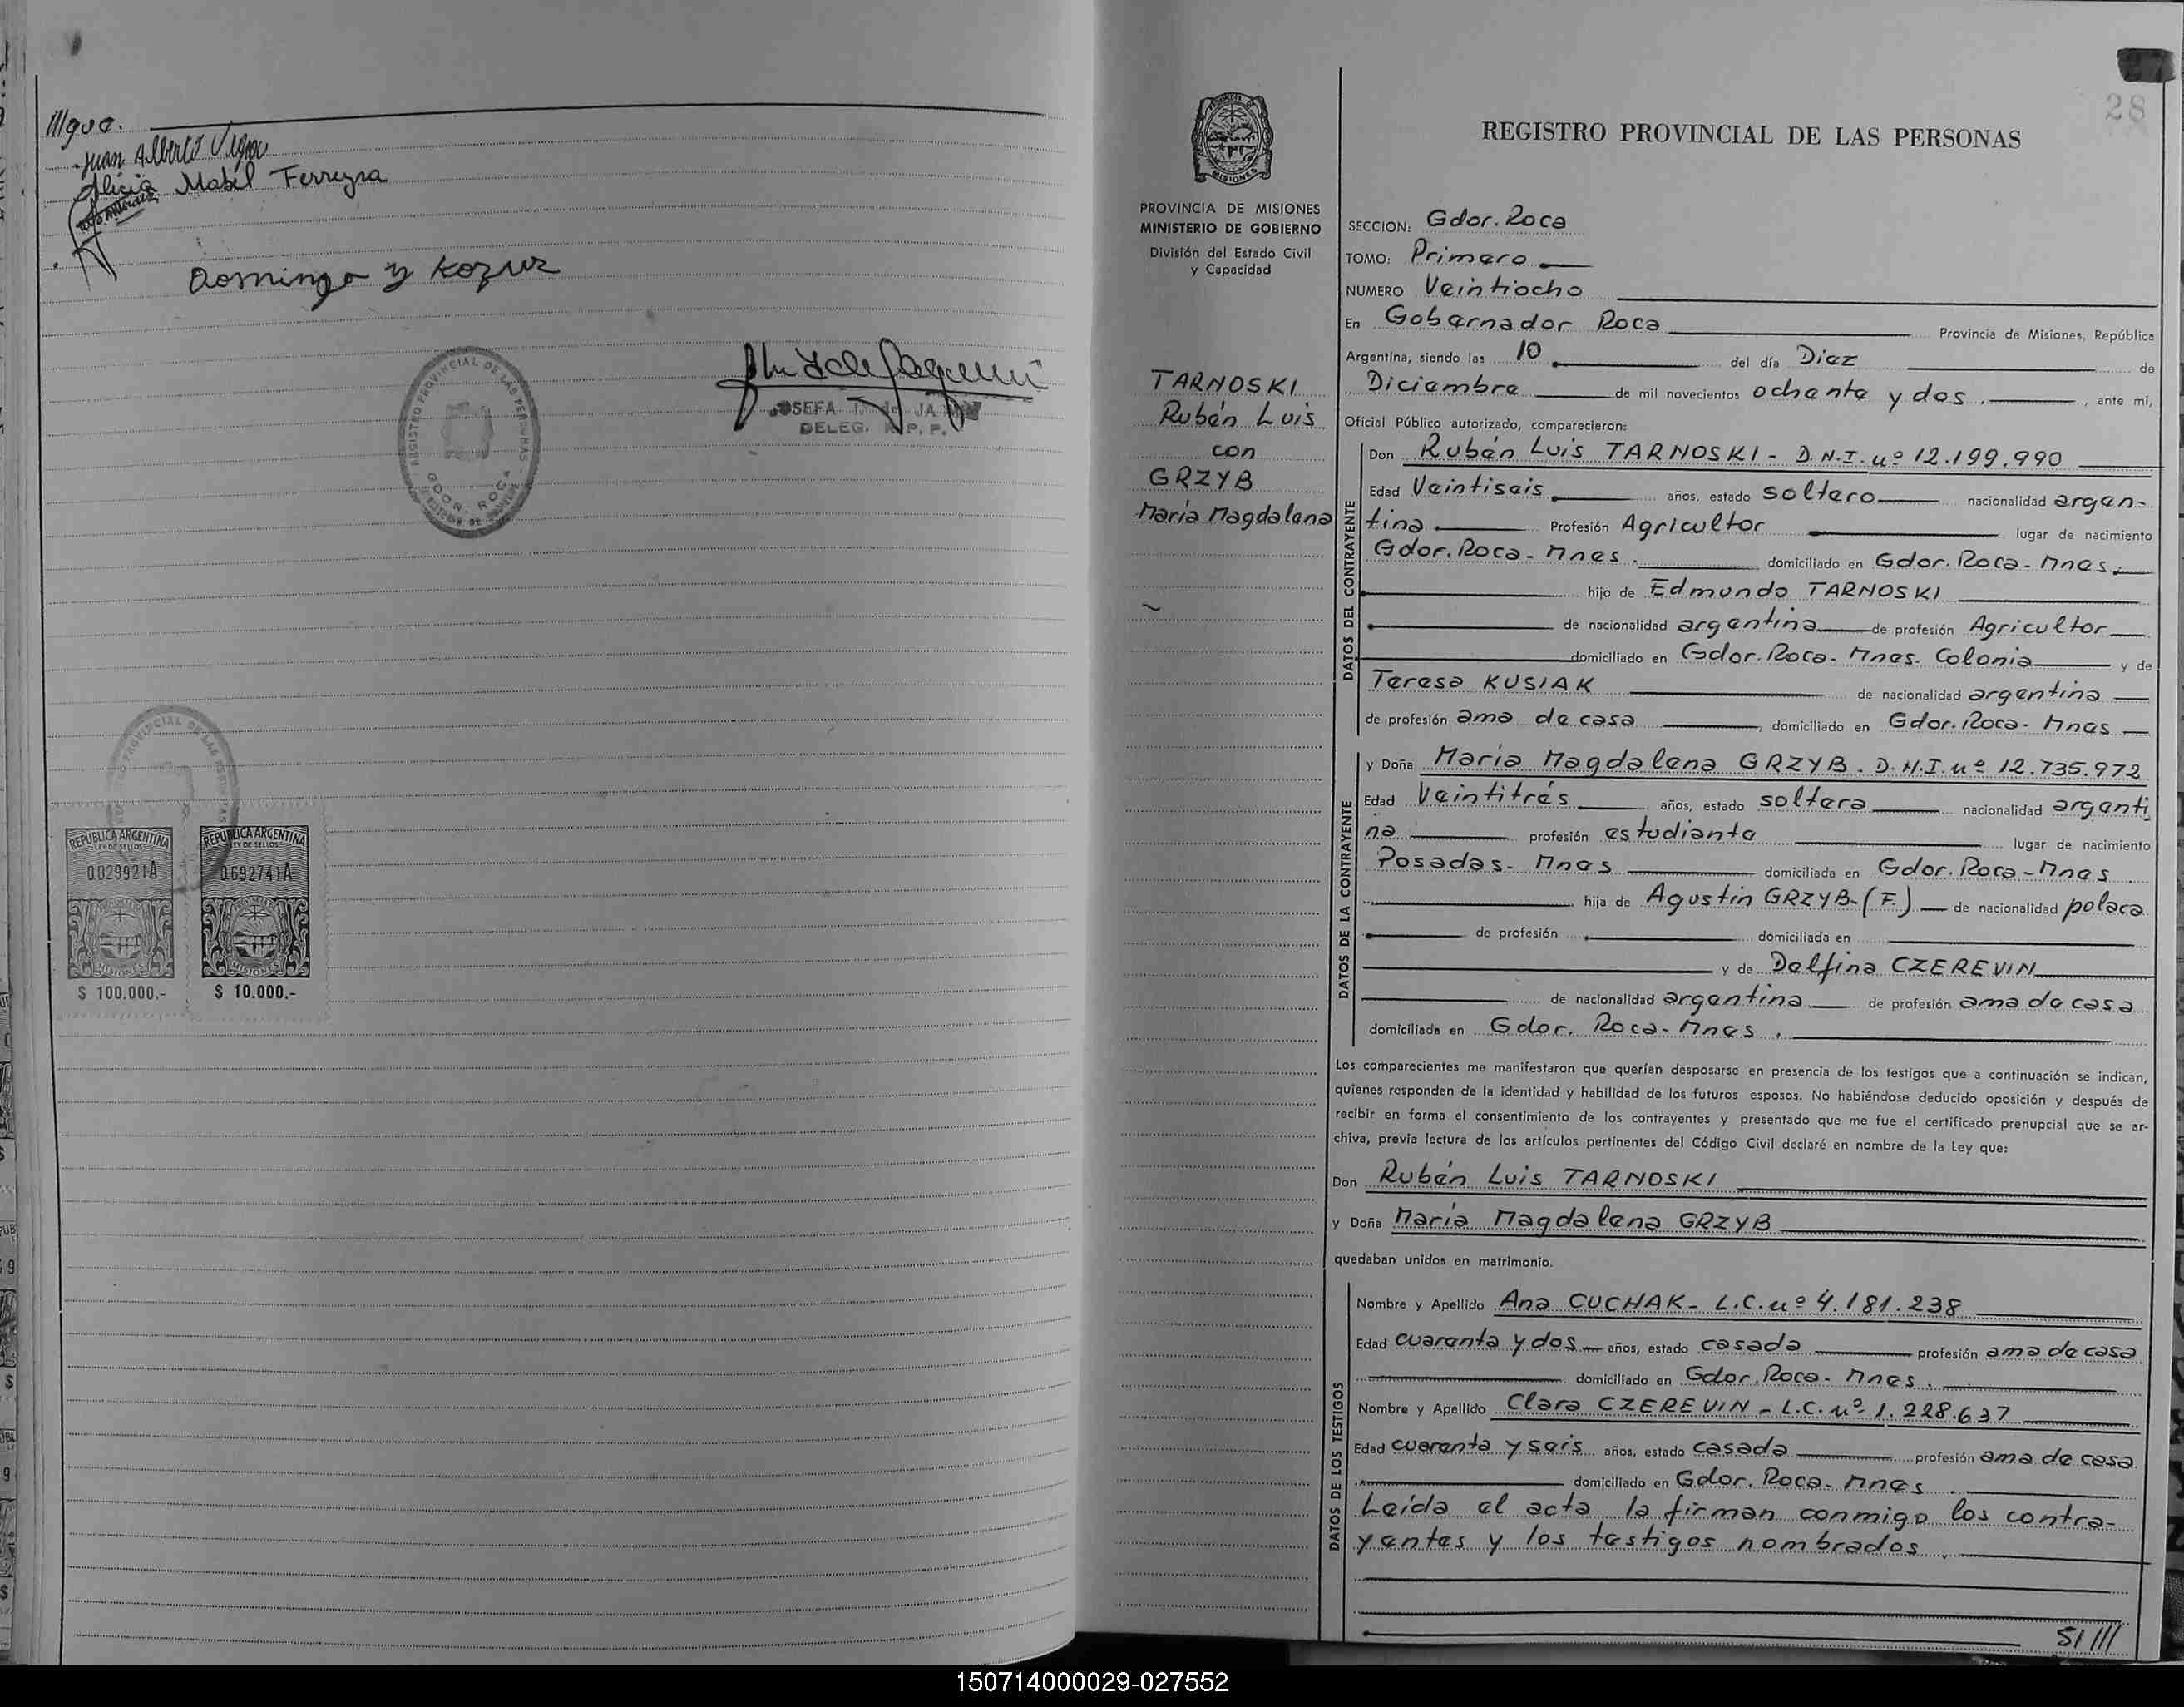 Mgue.
Juan Alberto
Alicia Mabel Ferreyra
Domingo y Kozur
REGISTRO PROVINCIAL DE LAS PERSONAS
GDOR. ROCA
OSEFA
DELEG. R. P. P.
REPUBLICA ARGENTINA
LEY DE SELLOS
0029921A
MISIONES
$ 100.000.-
REPUBLICA ARGENTINA
LEY DE SELLOS
0692741A
MISIONES
$ 10.000.-
28
PROVINCIA DE MISIONES
MINISTERIO DE GOBIERNO
División del Estado Civil
y Capacidad
TARNOSKI
Rubén Luis
con
GRZYB
María Magdalena
REGISTRO PROVINCIAL DE LAS PERSONAS
SECCION: Gdor. Roca
TOMO: Primero
NUMERO Veintiocho
En Gobernador Roca Provincia de Misiones, República
Argentina, siendo las 10 del día Diez de
Diciembre de mil novecientos ochenta y dos. , ante mi,
Oficial Público autorizado, comparecieron:
DATOS DEL CONTRAYENTE
Don Rubén Luis TARNOSKI - D.N.I. nº 12.199.990
Edad Veintiseis años, estado soltero nacionalidad argen-
tina Profesión Agricultor lugar de nacimiento
Gdor. Roca - Mnes. domiciliado en Gdor. Roca - Mnes.
hijo de Edmundo TARNOSKI
de nacionalidad argentina de profesión Agricultor
domiciliado en Gdor. Roca - Mnes. Colonia y de
Teresa KUSIAK de nacionalidad argentina
de profesión ama de casa , domiciliado en Gdor. Roca - Mnes
DATOS DE LA CONTRAYENTE
y Doña María Magdalena GRZYB. D.N.I. nº 12.735.972
Edad Veintitrés años, estado soltera nacionalidad argenti
na profesión estudiante lugar de nacimiento
Posadas - Mnes domiciliada en Gdor. Roca - Mnes.
hija de Agustin GRZYB - (F.) de nacionalidad polaca
de profesión domiciliada en
y de Delfina CZEREVIN
de nacionalidad argentina de profesión ama de casa
domiciliada en Gdor. Roca - Mnes.
Los comparecientes me manifestaron que querían desposarse en presencia de los testigos que a continuación se indican,
quienes responden de la identidad y habilidad de los futuros esposos. No habiéndose deducido oposición y después de
recibir en forma el consentimiento de los contrayentes y presentado que me fue el certificado prenupcial que se ar-
chiva, previa lectura de los artículos pertinentes del Código Civil declaré en nombre de la Ley que:
Don Rubén Luis TARNOSKI
y Doña María Magdalena GRZYB
quedaban unidos en matrimonio.
DATOS DE LOS TESTIGOS
Nombre y Apellido Ana CUCHAK - L.C. nº 4.181.238
Edad cuarenta y dos años, estado casada profesión ama de casa
domiciliado en Gdor. Roca - Mnes.
Nombre y Apellido Clara CZEREVIN - L.C. nº 1.228.637
Edad cuarenta y seis años, estado casada profesión ama de casa
domiciliado en Gdor. Roca - Mnes.
Leída el acta la firman conmigo los contra-
yentes y los testigos nombrados.
SI///
150714000029-027552